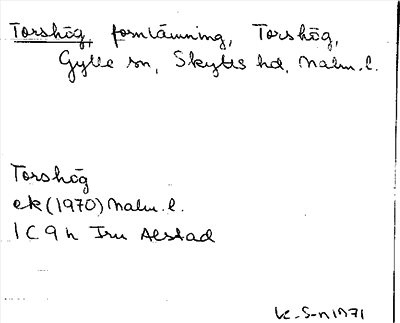 Torshög, fornlämning, Torshög,
Gylle sn, Skytts hd, Malm. l.
Torshög
ek (1970) Malm. l.
1 C 9 h Alstad
1971